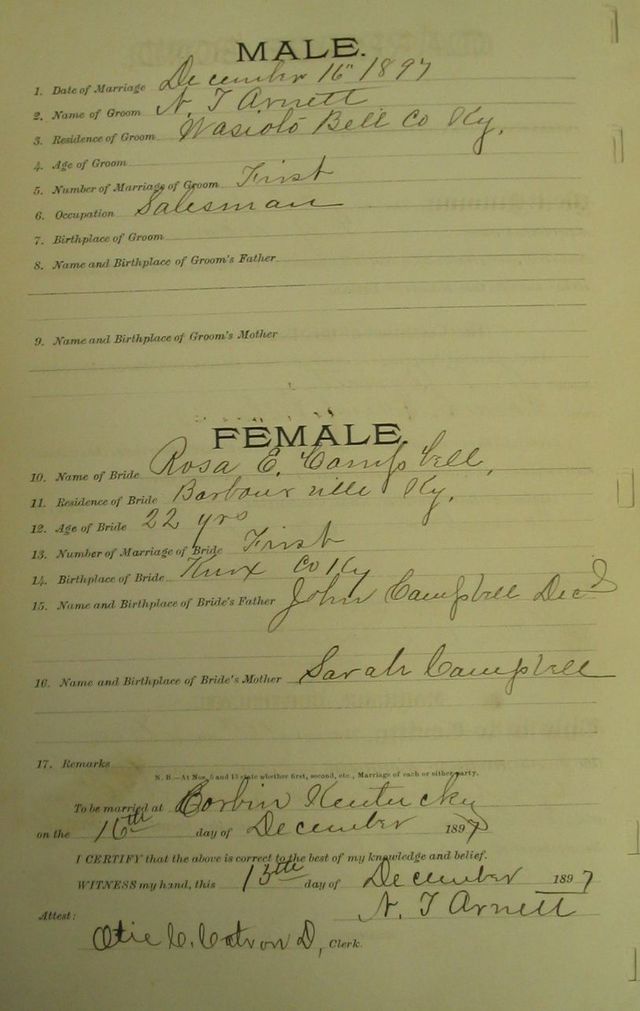 MALE.
1. Date of Marriage December 16" 1897
2. Name of Groom N. T Arnett
3. Residence of Groom Wasioto Bell Co Ky,
4. Age of Groom
5. Number of Marriage of Groom First
6. Occupation Salesman
7. Birthplace of Groom
8. Name and Birthplace of Groom's Father
9. Name and Birthplace of Groom's Mother
FEMALE.
10. Name of Bride Rosa E. Campbell,
11. Residence of Bride Barbourville Ky,
12. Age of Bride 22 yrs
13. Number of Marriage of Bride First
14. Birthplace of Bride Knox Co Ky
15. Name and Birthplace of Bride's Father John Campbell Decd
16. Name and Birthplace of Bride's Mother Sarah Campbell
17. Remarks
N. B.—At Nos. 5 and 13 state whether first, second, etc., Marriage of each or either party.
To be married at Corbin Kentucky
on the 16th day of December 1897
I CERTIFY that the above is correct to the best of my knowledge and belief.
WITNESS my hand, this 13th day of December 1897
N. T Arnett
Attest:
C. Catron D, Clerk.